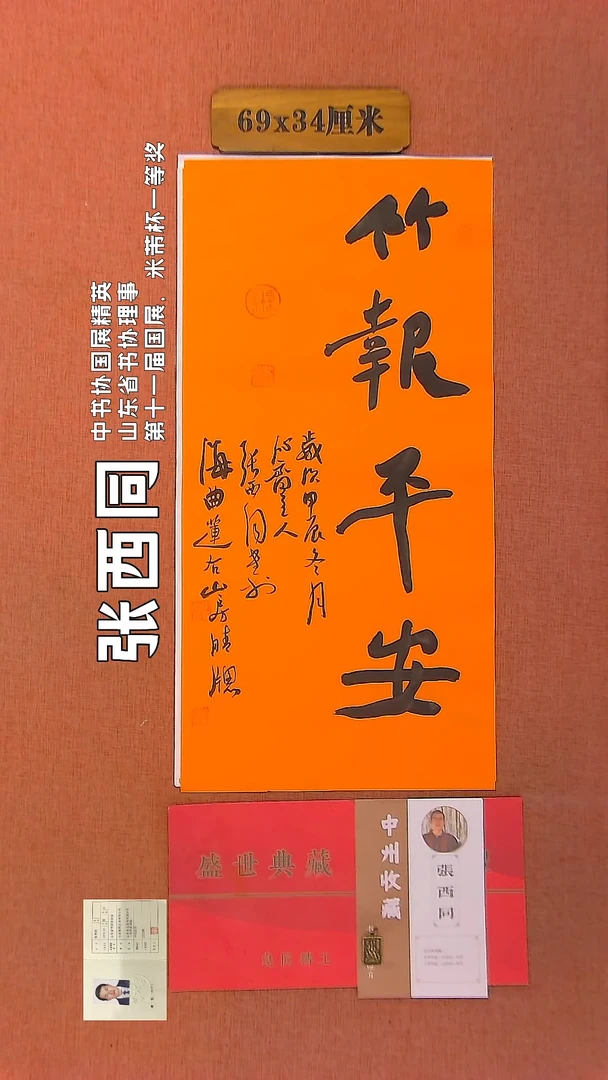 69x34厘米
竹報平安
歲次甲辰冬月
張西同書於
海曲蓮石山房晴窗
中书协国展精英
山东省书协理事
第十一届国展、米芾杯一等奖
张西同
盛世典藏
中州收藏
張西同